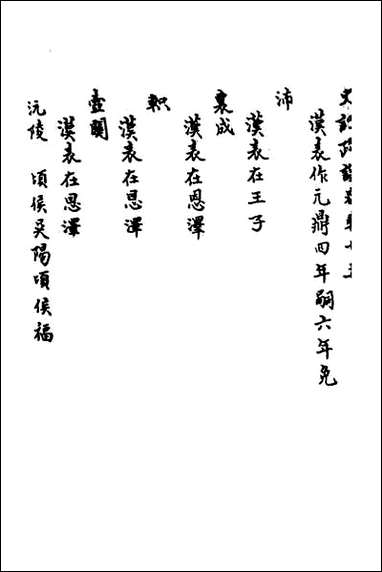 漢表作元鼎四年嗣六年免
沛
漢表在王子
襄成
漢表在恩澤
軹
漢表在恩澤
壺關
漢表在恩澤
沅陵　頃侯吳陽頃侯福